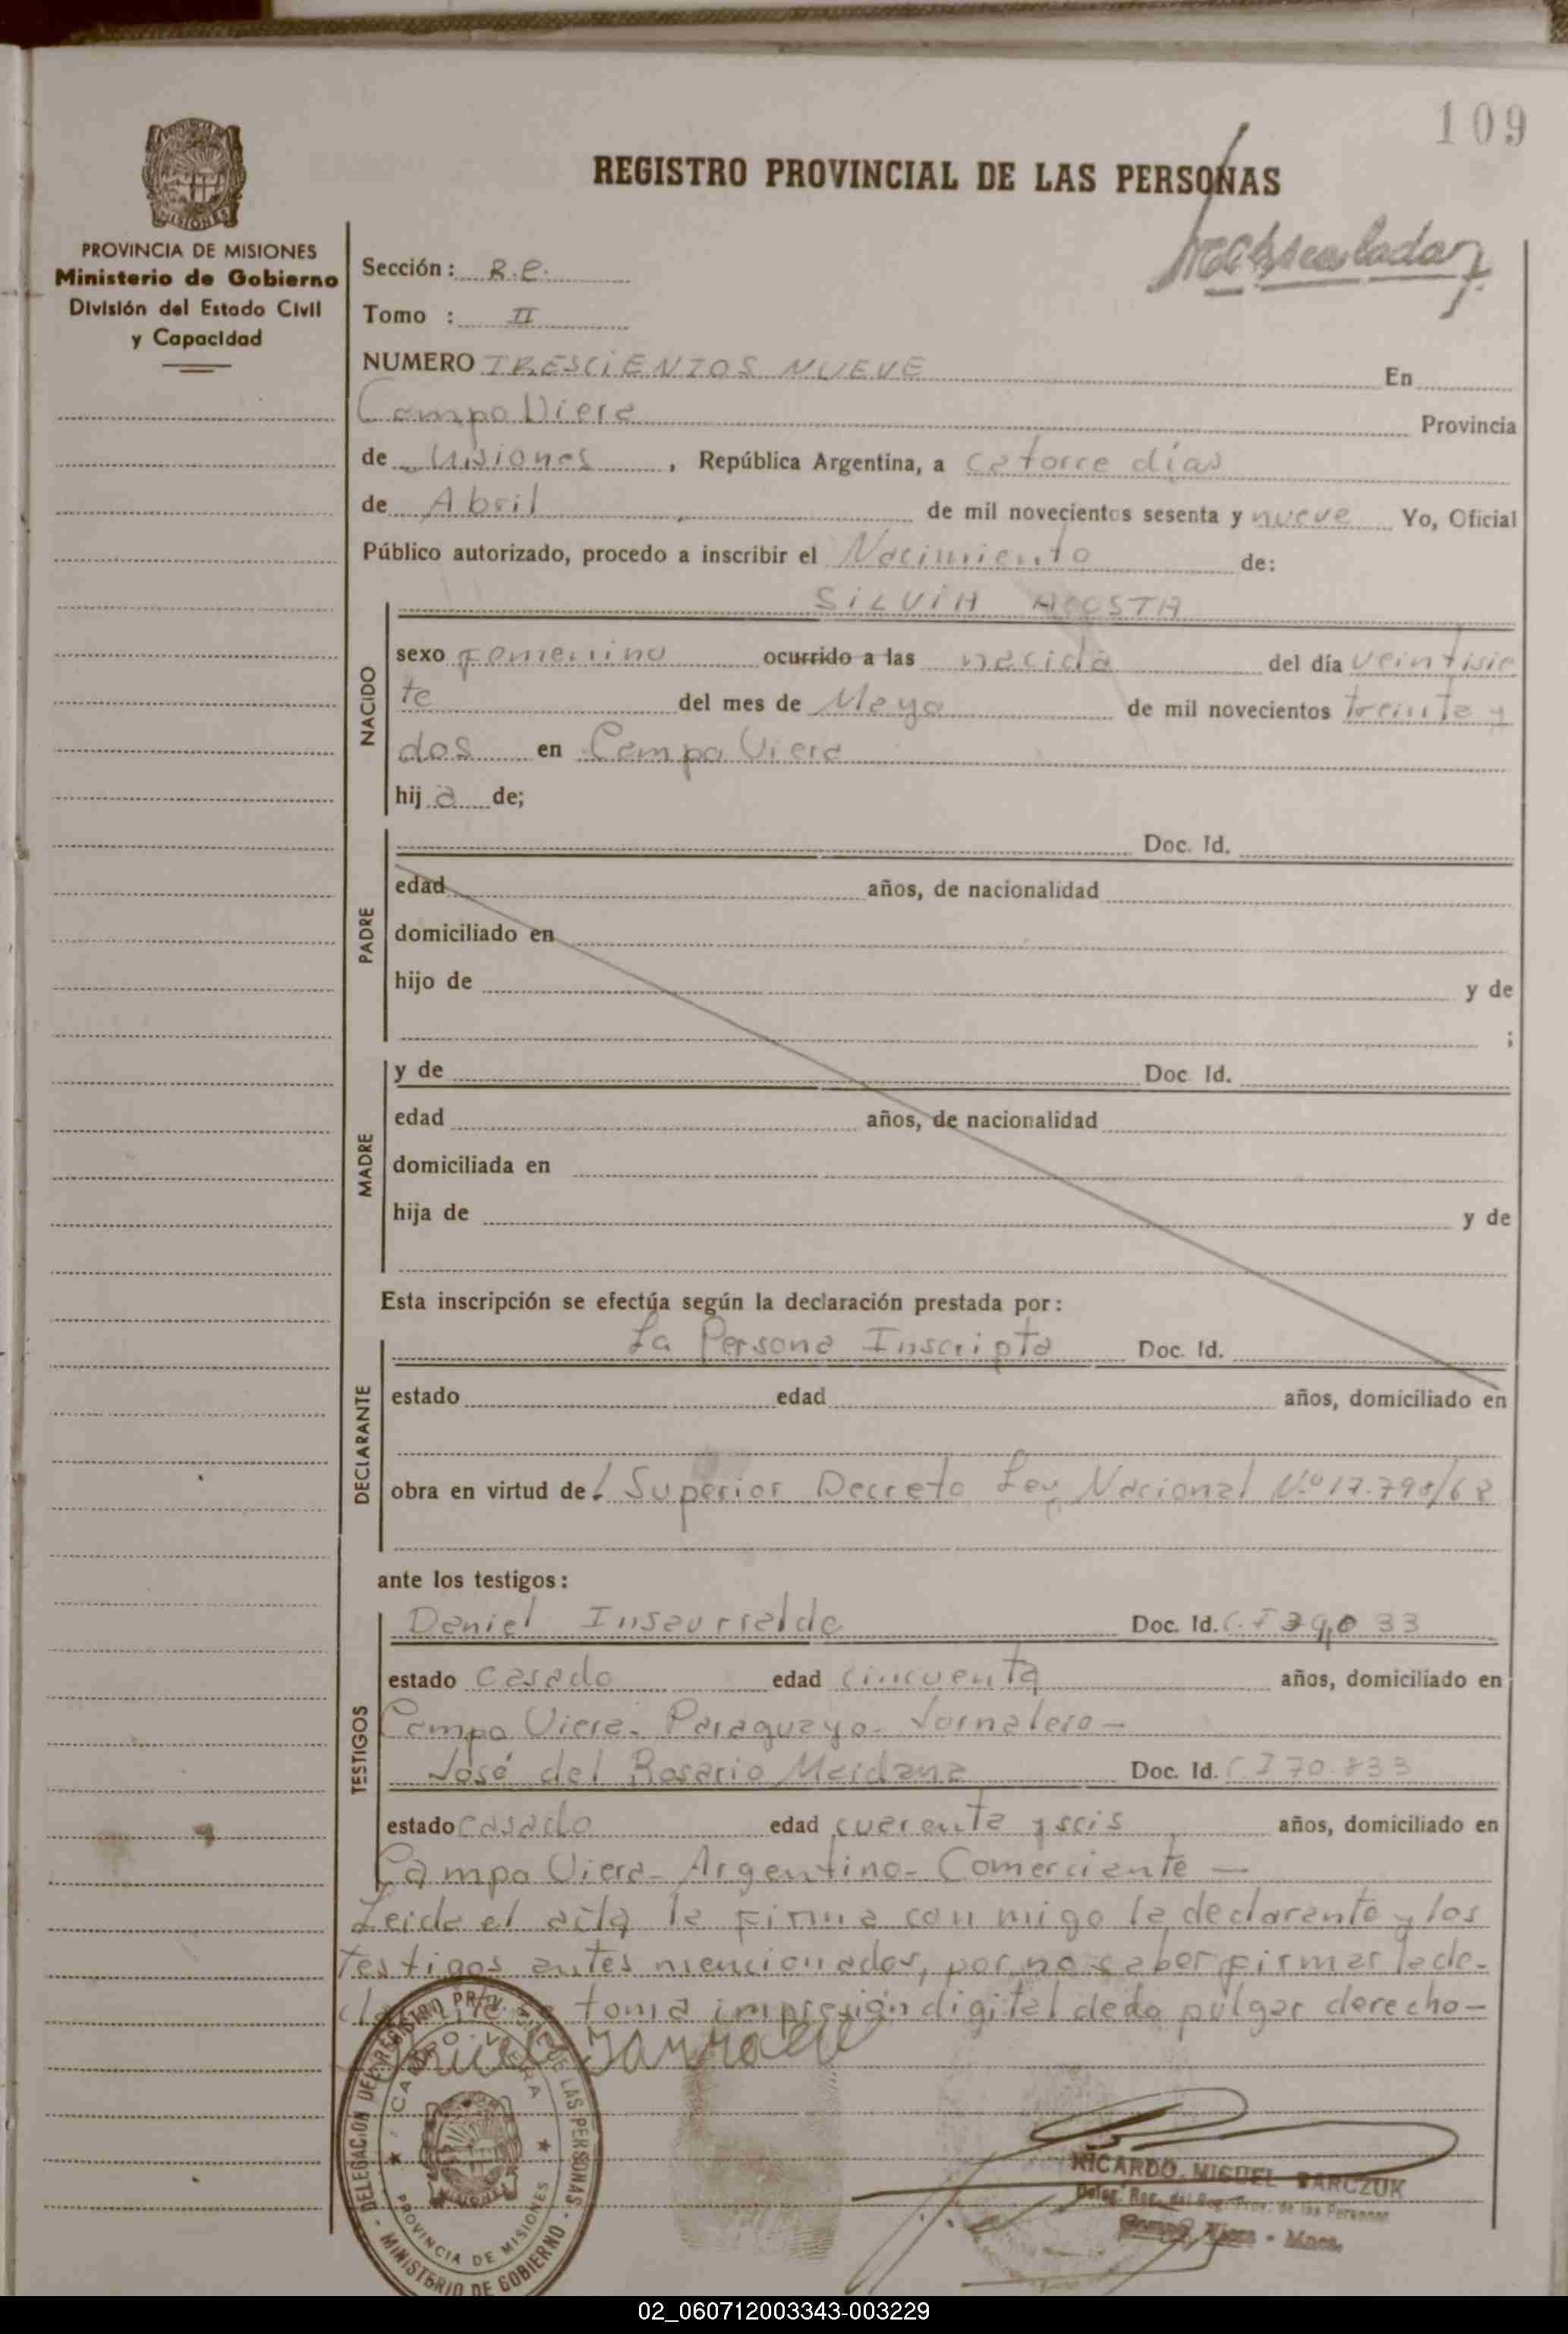 109
REGISTRO PROVINCIAL DE LAS PERSONAS
PROVINCIA DE MISIONES
Ministerio de Gobierno
División del Estado Civil
y Capacidad
Sección: R.E.
Tomo : II
NUMERO TRESCIENTOS NUEVE En
Campo Viera Provincia
de Misiones, República Argentina, a catorce días
de Abril de mil novecientos sesenta y nueve Yo, Oficial
Público autorizado, procedo a inscribir el Nacimiento de:
SILVIA ACOSTA
NACIDO
sexo femenino ocurrido a las nacida del día veintisie
te del mes de Mayo de mil novecientos treinta y
dos en Campo Viera
hij a de;
PADRE
Doc. Id.
edad años, de nacionalidad
domiciliado en
hijo de y de
;
MADRE
y de Doc Id.
edad años, de nacionalidad
domiciliada en
hija de y de
Esta inscripción se efectúa según la declaración prestada por:
DECLARANTE
La Persona Inscripta Doc. Id.
estado edad años, domiciliado en
obra en virtud del Superior Decreto Ley Nacional Nº 17.798/68
ante los testigos:
TESTIGOS
Daniel Insaurralde Doc. Id.
estado casado edad cincuenta años, domiciliado en
Campo Viera- Paraguayo- Jornalero-
José del Rosario Maidana Doc. Id. C I 70.833
estado casado edad cuarenta y seis años, domiciliado en
Campo Viera- Argentino- Comerciante -
Leida el acta la firma con migo la declarante y los
testigos antes mencionados, por no saber firmar la de-
toma impresión digital dedo pulgar derecho-
DELEGACION DEL REGISTRO PROV. DE LAS PERSONAS
CAMPO VIERA
MISIONES
PROVINCIA DE MISIONES
- MINISTERIO DE GOBIERNO -
RICARDO MIGUEL BARCZUK
Deleg. Reg. del Reg. Prov. de las Personas
Campo Viera - Mnes.
02_060712003343-003229